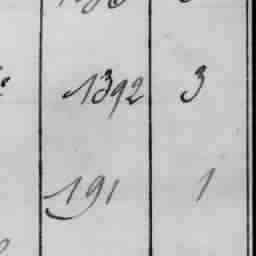 1392 3
191 1